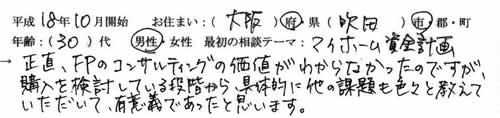 平成18年10月開始 お住まい:(大阪)府・県(吹田)市・郡・町
年齢:(30)代 男性・女性 最初の相談テーマ:マイホーム資金計画
→ 正直、FPのコンサルティングの価値がわからなかったのですが、
購入を検討している段階から、具体的に他の課題も色々と教えて
いただいて、有意義であったと思います。